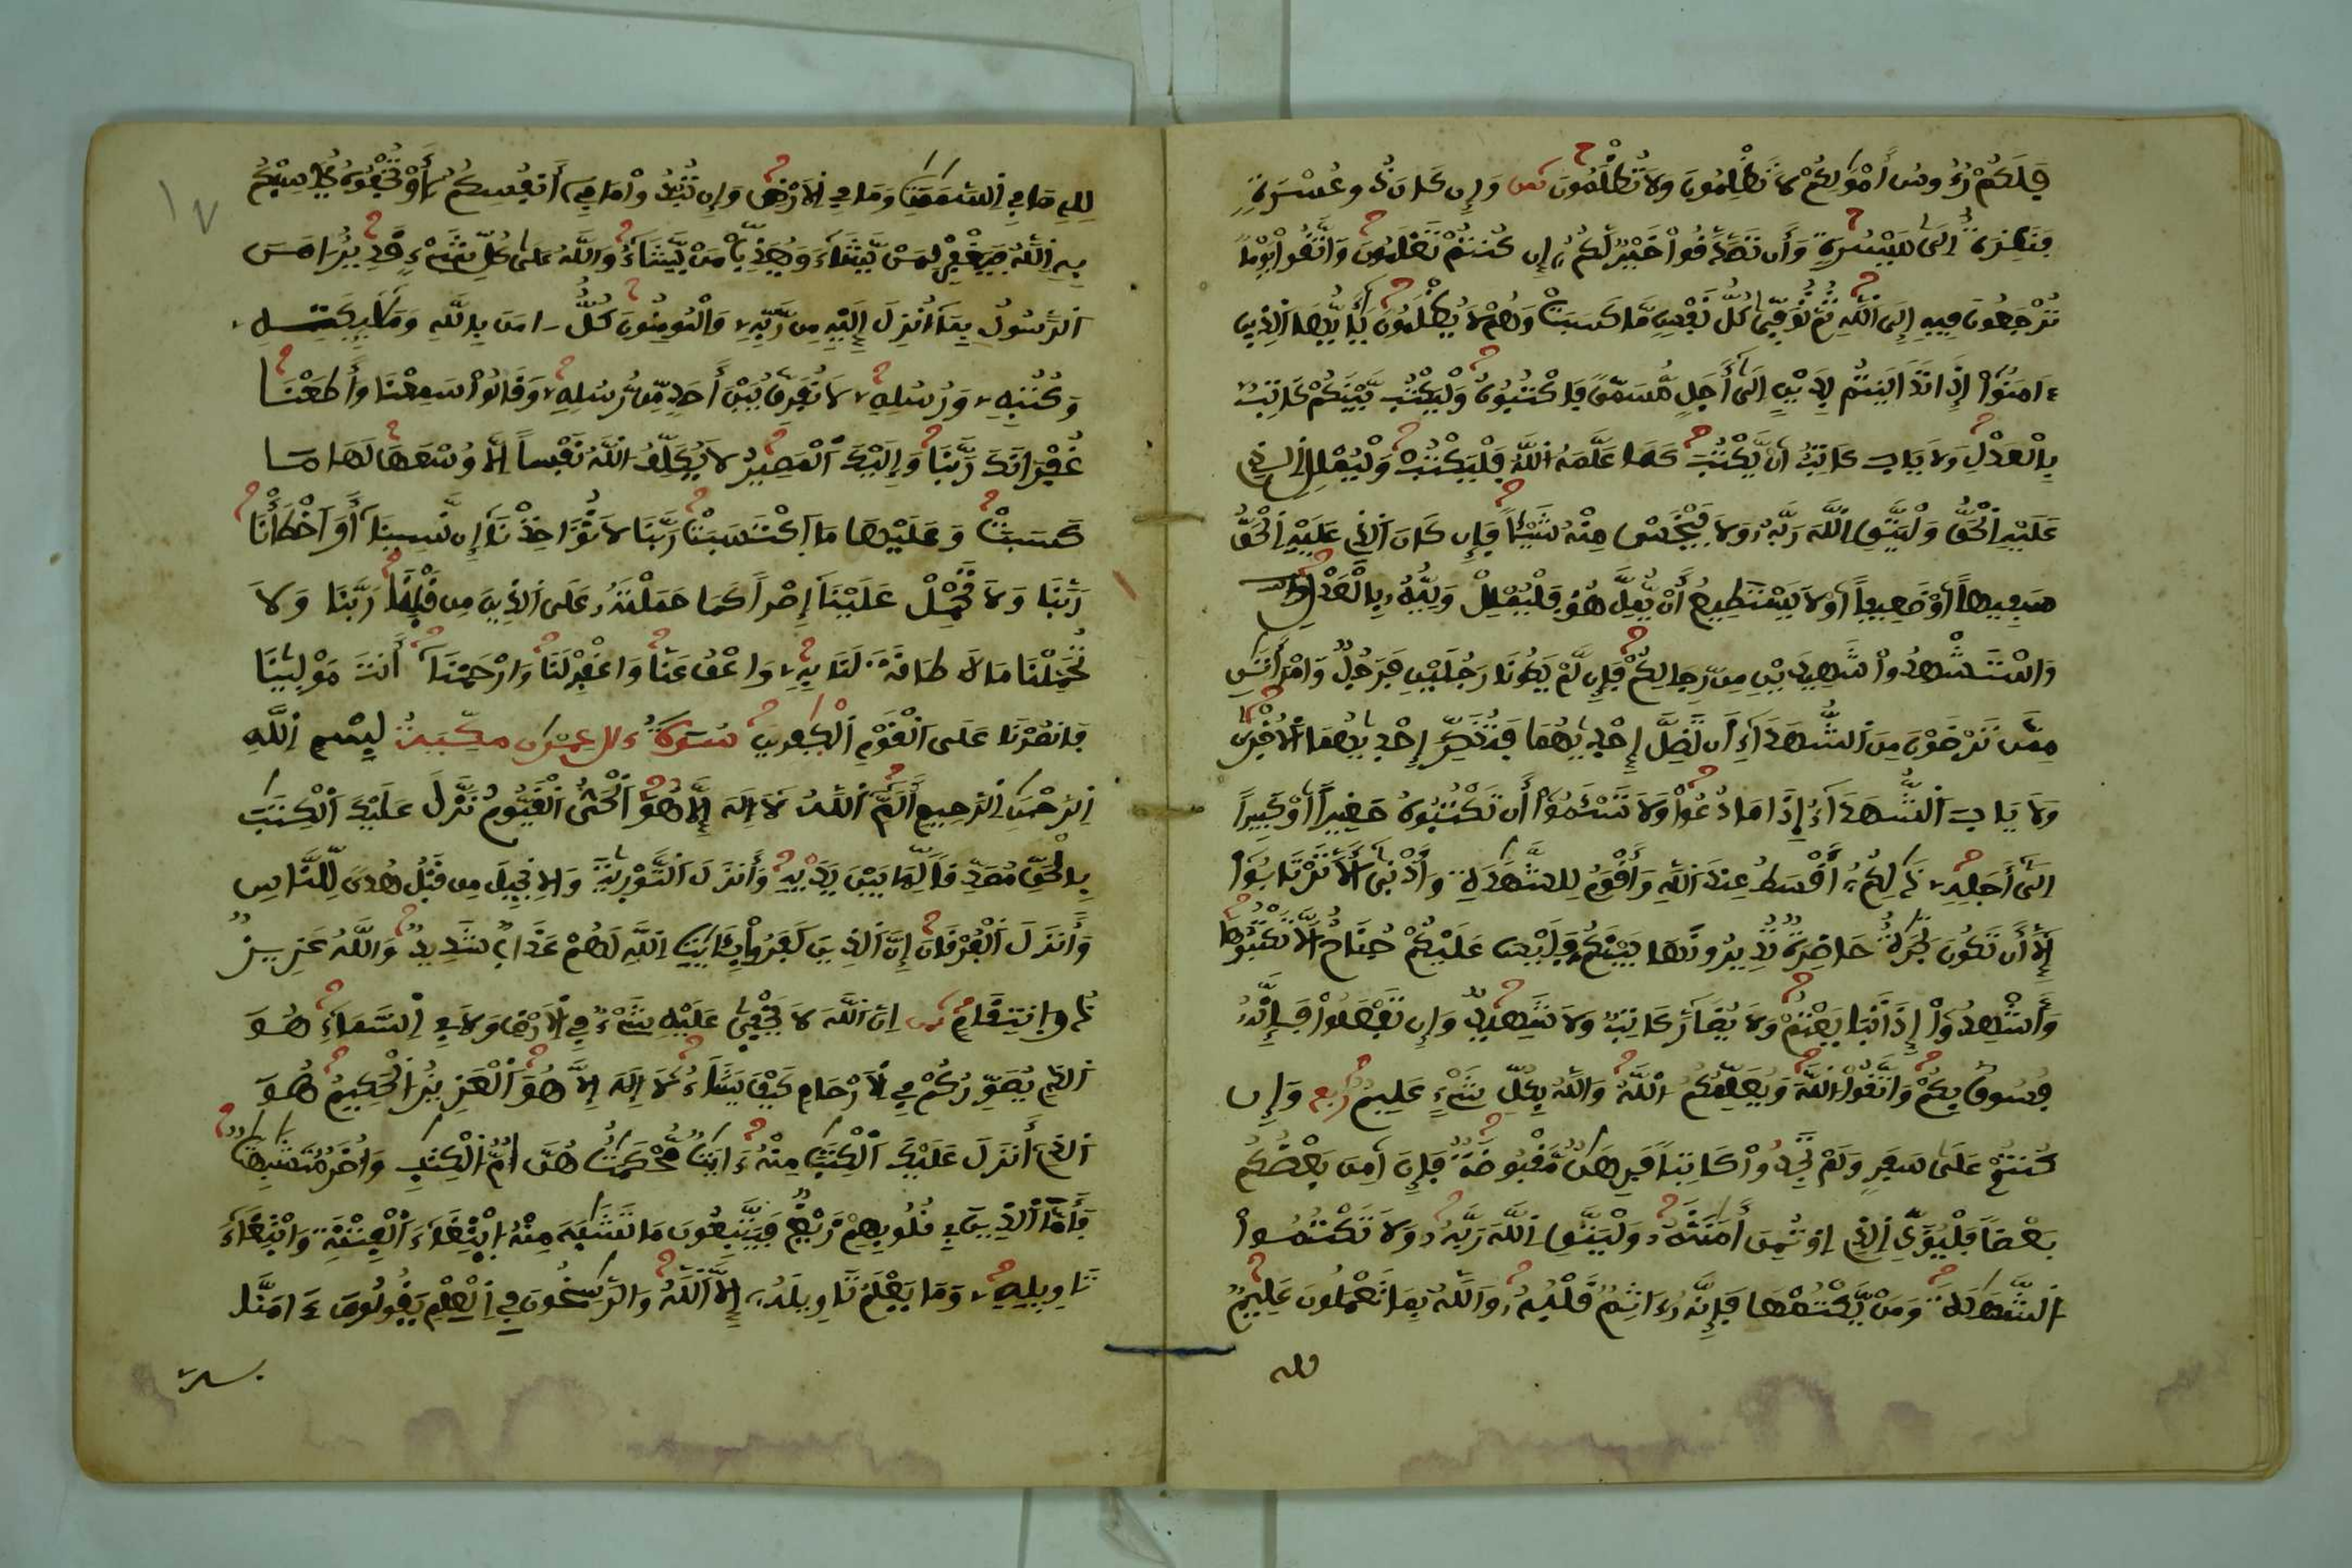 فلكم رءوس أمولكم لا تظلمون ولا تظلمون ثمن وإن كان ذو عسرة
فنظرة إلى ميسرة وأن تصدقوا خير لكم إن كنتم تعلمون واتقوا يوما
ترجعون فيه إلى الله ثم توفى كل نفس ما كسبت وهم لا يظلمون يأيها الذين
ءامنوا إذا تداينتم بدين إلى أجل مسمى فاكتبوه وليكتب بينكم كاتب
بالعدل ولا ياب كاتب أن يكتب كما علمه الله فليكتب وليملل الذي
عليه الحق وليتق الله ربه ولا يبخس منه شيئا فإن كان الذي عليه الحق
سفيها أو ضعيفا أو لا يستطيع أن يمل هو فليملل وليه بالعدل
واستشهدوا شهيدين من رجالكم فإن لم يكونا رجلين فرجل وامرأتن
ممن ترضون من الشهداء ان تضل إحديهما فتذكر إحديهما الأخرى
ولا ياب الشهداء إذا ما دعوا ولا تسئموا أن تكتبوه صغيرا أو كبيرا
إلى أجله ذلكم أقسط عند الله وأقوم للشهدة وأدنى ألا ترتابوا
إلا أن تكون تجرة حاضرة تديرونها بينكم فليس عليكم جناح ألا تكتبوها
وأشهدوا إذا تبايعتم ولا يضار كاتب ولا شهيد وإن تفعلوا فإنه
فسوق بكم واتقوا الله ويعلمكم الله والله بكل شيء عليم ربع وإن
كنتم على سفر ولم تجدوا كاتبا فرهن مقبوضة فإن امن بعضكم
بعضا فليؤد الذي اوتمن أمنته وليتق الله ربه ولا تكتموا
الشهدة ومن يكتمها فإنه ءاثم قلبه والله بما تعملون عليم
لله
لله ما في السموت وما في الارض وإن تبدوا ما في أنفسكم أو تخفوه يحاسبكم
به الله فيغفر لمن يشاء ويعذب من يشاء والله على كل شيء قدير امن
الرسول بما أنزل إليه من ربه والمومنون كل امن بالله وملئكته
وكتبه ورسله لا نفرق بين أحد من رسله وقالوا سمعنا وأطعنا
غفرانك ربنا وإليك المصير لا يكلف الله نفسا إلا وسعها لها ما
كسبت وعليها ما اكتسبت ربنا لا تؤاخذنا إن نسينا أو اخطأنا
ربنا ولا تحمل علينا إصرا كما حملته على الذين من قبلنا ربنا ولا
تحملنا ما لا طاقة لنا به واعف عنا واغفر لنا وارحمنا أنت مولينا
فانصرنا على القوم الكفرين سورة ءال عمرن مدنية بسم الله
الرحمن الرحيم ألم الله لا إله إلا هو الحي القيوم نزل عليك الكتب
بالحق مصدقا لما بين يديه وأنزل التورية والانجيل من قبل هدى للناس
وأنزل الفرقان إن الذين كفروا بئايت الله لهم عذاب شديد والله عزيز
ذو انتقام ثمن إن الله لا يخفى عليه شيء في الارض ولا في السماء هو
الذي يصوركم في الارحام كيف يشاء لا إله إلا هو العزيز الحكيم هو
الذي أنزل عليك الكتب منه ءايت محكمت هن ام الكتب واخر متشبهت
فأما الذين في قلوبهم زيغ فيتبعون ما تشبه منه ابتغاء الفتنة وابتغاء
تاويله وما يعلم تاويله إلا الله والرسخون في العلم يقولون ءامنا